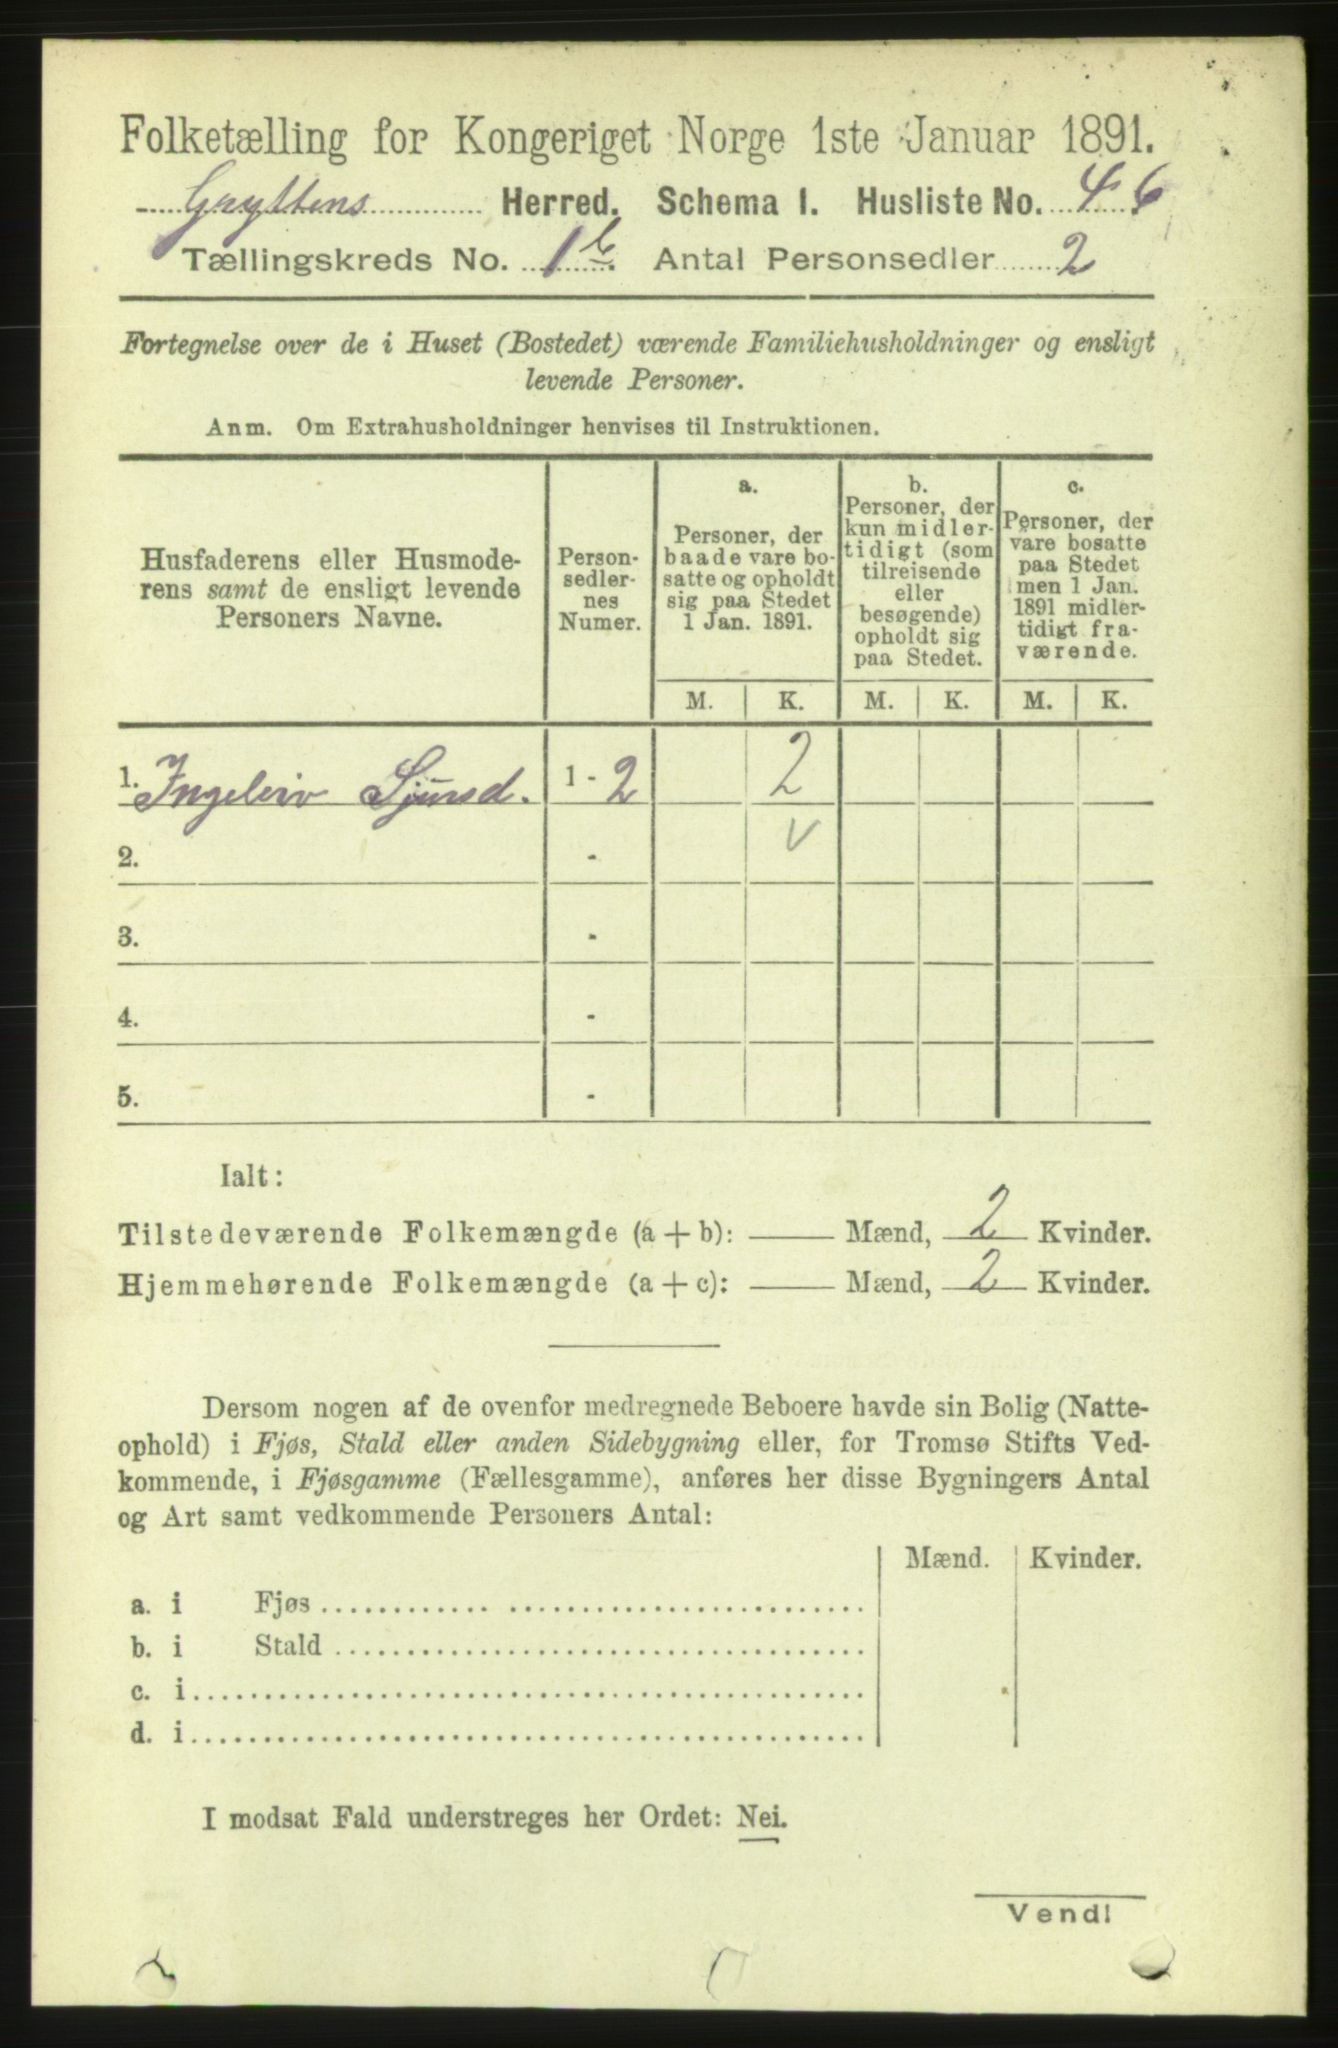 Folketælling for Kongeriget Norge 1ste Januar 1891.
Gryttens Herred. Schema I. Husliste No. 46
Tællingskreds No. 1b. Antal Personsedler 2
Fortegnelse over de i Huset (Bostedet) værende Familiehusholdninger og ensligt
levende Personer.
Anm. Om Extrahusholdninger henvises til Instruktionen.
Husfaderens eller Husmode-
rens samt de ensligt levende
Personers Navne.
Person-
sedler-
nes
Numer.
a.
Personer, der
baade vare bo-
satte og opholdt
sig paa Stedet
1 Jan. 1891.
b.
Personer, der
kun midler-
tidigt (som
tilreisende
eller
besøgende)
opholdt sig
paa Stedet.
c.
Personer, der
vare bosatte
paa Stedet
men 1 Jan.
1891 midler-
tidigt fra-
værende.
M. K. M. K. M. K.
1. Ingeleiv Sjursd. 1 - 2 2
2. - V
3. -
4. -
5. -
Ialt:
Tilstedeværende Folkemængde (a + b): Mænd, 2 Kvinder.
Hjemmehørende Folkemængde (a + c): Mænd, 2 Kvinder.
Dersom nogen af de ovenfor medregnede Beboere havde sin Bolig (Natte-
ophold) i Fjøs, Stald eller anden Sidebygning eller, for Tromsø Stifts Ved-
kommende, i Fjøsgamme (Fællesgamme), anføres her disse Bygningers Antal
og Art samt vedkommende Personers Antal:
Mænd. Kvinder.
a. i Fjøs
b. i Stald
c. i
d. i
I modsat Fald understreges her Ordet: Nei.
Vend!